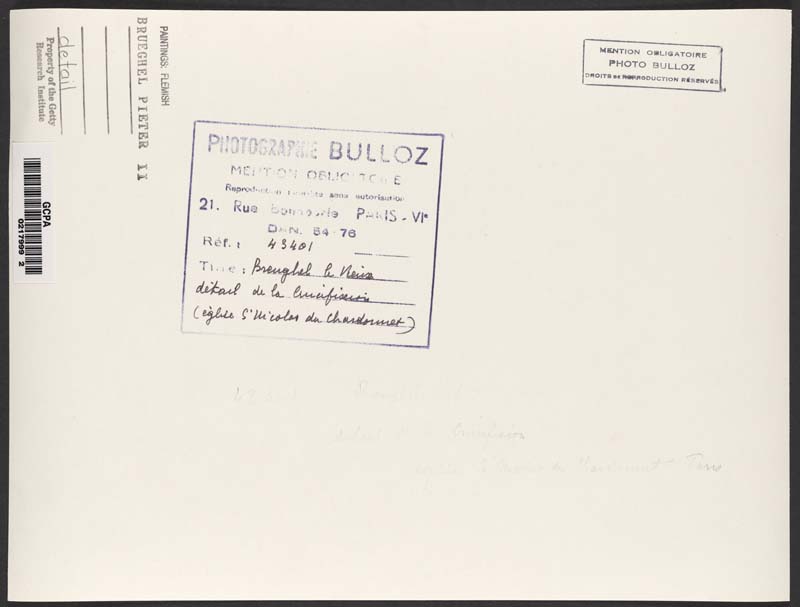 PAINTINGS: FLEMISH
BRUEGHEL PIETER II
detail
Property of the Getty
Research Institute
GCPA
0217999 2
MENTION OBLIGATOIRE
PHOTO BULLOZ
DROITS DE REPRODUCTION RÉSERVÉS
PHOTOGRAPHIE BULLOZ
MENTION OBLIGATOIRE
Reproduction interdite sans autorisation
21. Rue Bonaparte PARIS - VIe
DAN. 54-76
Réf.: 43401
Titre: Breughel le Vieux
détail de la Crucifixion
(église St Nicolas du Chardonnet)
Crucifixion